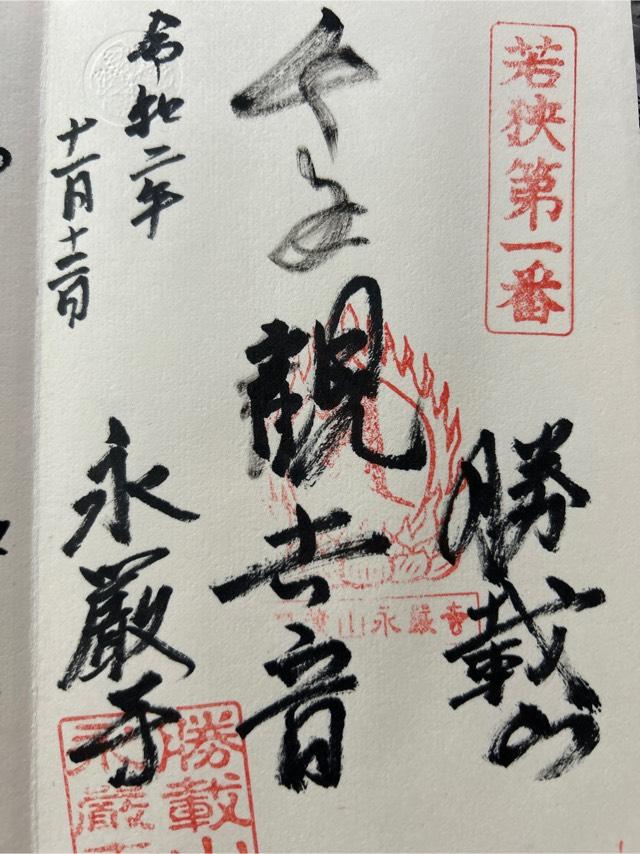 若狭第一番
勝載山
千手観世音
山永厳寺
永厳寺
令和二年
十一月十二日
勝載山
永厳寺